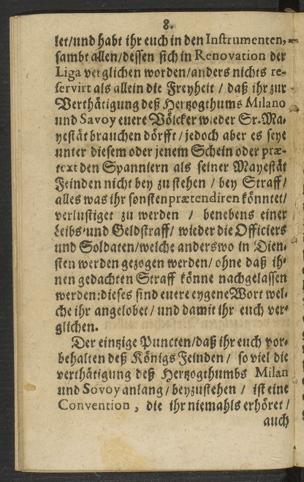 8.
let/und habt ihr euch in den Instrumenten,
sambt allen/dessen sich in Renovation der
Liga verglichen worden/anders nichts re-
servirt als allein die Freyheit / daß ihr zur
Verthätigung deß Hertzogthums Milano
und Savoy euere Völcker wieder Sr. Ma-
yestät brauchen dörfft / jedoch aber es seye
unter diesem oder jenem Schein oder præ-
text den Spanniern als seiner Mayestät
Feinden nicht bey zu stehen / bey Straff /
alles was ihr sonsten prætendiren könntet/
verlustiget zu werden / benebens einer
Leibs-und Geldstraff/ wieder die Officiers
und Soldaten/welche anderswo in Dien-
sten werden gezogen werden/ohne daß ih-
nen gedachten Straff könne nachgelassen
werden:dieses sind euere eygene Wort wel-
che ihr angelobet / und damit ihr euch ver-
glichen.
Der eintzige Puncten/daß ihr euch vor-
behalten deß Königs Feinden / so viel die
verthätigung deß Hertzogthumbs Milan
und Sovoy anlang / beyzustehen / ist eine
Convention, die ihr niemahls erhöret /
auch